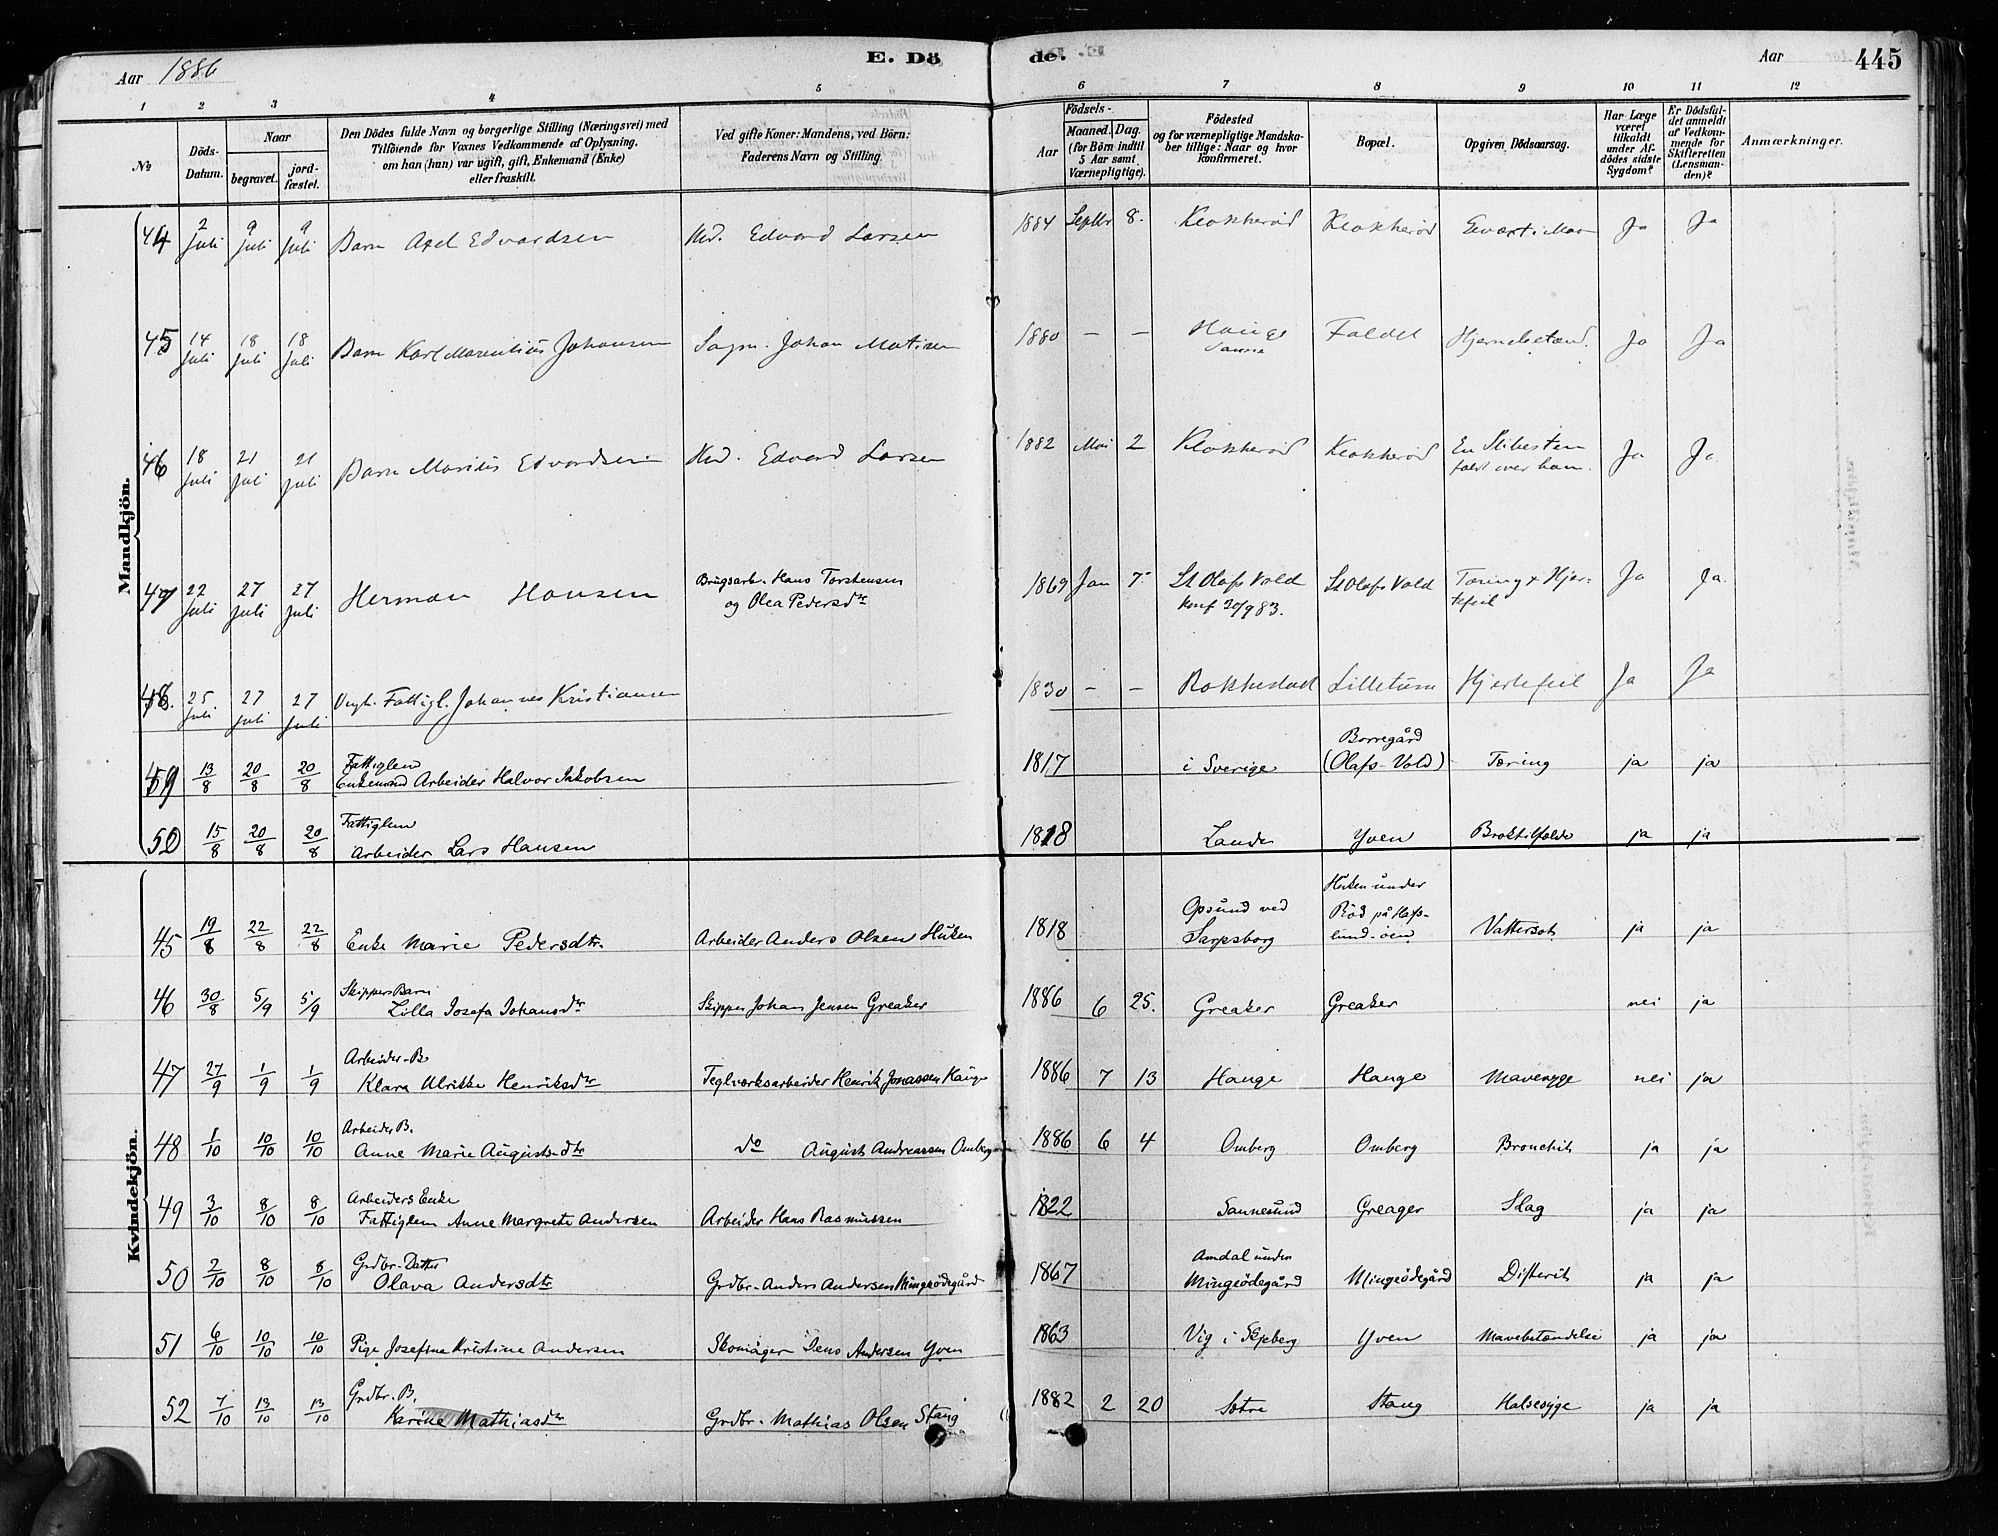 Aar 1886 E. Döde. Aar 445
1 2 3 4 5 6 7 8 9 10 11 12
No.
Döds-Datum.
Naar
begravet.
jord-fæstet.
Den Dödes fulde Navn og borgerlige Stilling (Næringsvei) med
Tilföiende for Voxnes Vedkommende af Oplysning,
om han (hun) var ugift, gift, Enkemand (Enke)
eller fraskilt.
Ved gifte Koner: Mandens, ved Börn:
Faderens Navn og Stilling.
Födsels-
Aar
Maaned. Dag.
(for Börn indtil
5 Aar samt
Værnepligtige).
Födested
og for værnepligtige Mandska-
ber tillige: Naar og hvor
konfirmeret.
Bopæl.
Opgiven Dödsaarsag.
Har Læge
været
tilkaldt
under Af-
dödes sidste
Sygdom?
Er Dödsfal-
det anmeldt
af Vedkom-
mende for
Skifteretten
(Lensman-
den)?
Anmærkninger.
Mandkjön.
44 2 Juli 9 Juli 9 Juli Barn Axel Edvardsen Edvard Larsen 1884 Septbr 8. Klokkeröd Klokkeröd Ja Ja
45 14 Juli 18 Juli 18 Juli Barn Karl Marentius Johansen Johan 1880 — — Hauge Faldet Hjernebetænd. Ja Ja
46 18 Juli 21 Juli 21 Juli Barn Marius Edvardsen Edvard Larsen 1882 Mai 2 Klokkeröd Klokkeröd En Ja Ja.
faldt over ham.
47 22 Juli 27 Juli 27 Juli Herman Hansen Brugsarb. Hans Torstensen 1869 Jan 7. St Olafs Vold St Olafs Vold Tæring & Hjer- Ja Ja.
og Olea Pedersdtr konf 30/9 83. tefeil
48. 25. Juli 27 Juli 27 Juli Fattigl. Johannes Kristiansen 1830 — — Rokkestad Lilletune Hjertefeil Ja Ja
49 13/8 20/8 20/8 Fattiglem
Enkemand Arbeider Halvor Jakobsen 1817 i Sverige Borregård
(Olafs-Vold) Tæring ja ja
50 15/8 20/8 20/8 Fattiglem
Arbeider Lars Hansen 1818 Yven Broktilfælde ja ja
Kvindekjön.
45 19/8 22/8 22/8 Enke Marie Pedersdtr. Arbeider Anders Olsen Huken 1818 Opsund ved
Sarpsborg Huken under
Röd på Hafs-
lund-öen Vattersot ja ja
46 30/8 5/9 5/9 Skippers Barn
Lilla Josefa Johansdtr Skipper Johan Jensen Greaker 1886 6 25. Greaker Greaker nei ja
47 27/9 1/9 1/9 Arbeider-B.
Klara Ulrikke Henriksdtr Teglværksarbeider Henrik Jonassen Hauge 1886 7 13 Hauge Hauge Mavesyge nei ja
48 1/10 10/10 10/10 Arbeider B.
Anne Marie Augustsdtr do August Andreassen Omberg 1886 6 4 Omberg Omberg Bronchit ja ja
49 3/10 8/10 8/10 Arbeiders Enke
Fattiglem Anne Margrete Andersen Arbeider Hans Rasmussen 1822 Sannesund Greager Slag ja ja
50 2/10 8/10 8/10 Grdbr-Datter
Olava Andersdtr Grdbr- Anders Andersen Mingeödegård 1867 Amdal under
Mingeödegård Mingeödegård Difterit ja ja
51 6/10 10/10 10/10 Pige Josefine Kristine Andersen Skomager Jens Andersen Yven 1863 Vig i Skjeberg Yven Mavebetændelse ja ja
52 7/10 13/10 13/10 Grdbr. B.
Karine Mathiasdtr Grdbr- Mathias Olsen Stang 1882 2 20 Sotra Stang Halssyge ja ja